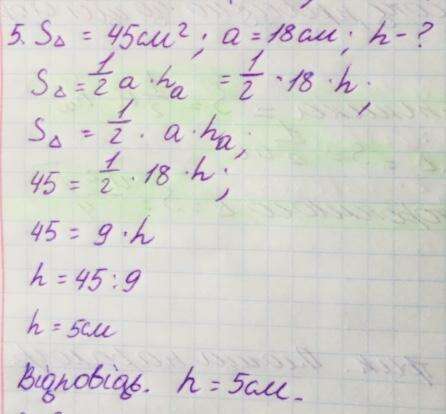 5. S△ = 45см²; a = 18см; h - ?
S△ = 1/2 a · hₐ = 1/2 · 18 · h;
S△ = 1/2 · a · hₐ;
45 = 1/2 · 18 · h;
45 = 9 · h
h = 45 : 9
h = 5см
Відповідь. h = 5см.